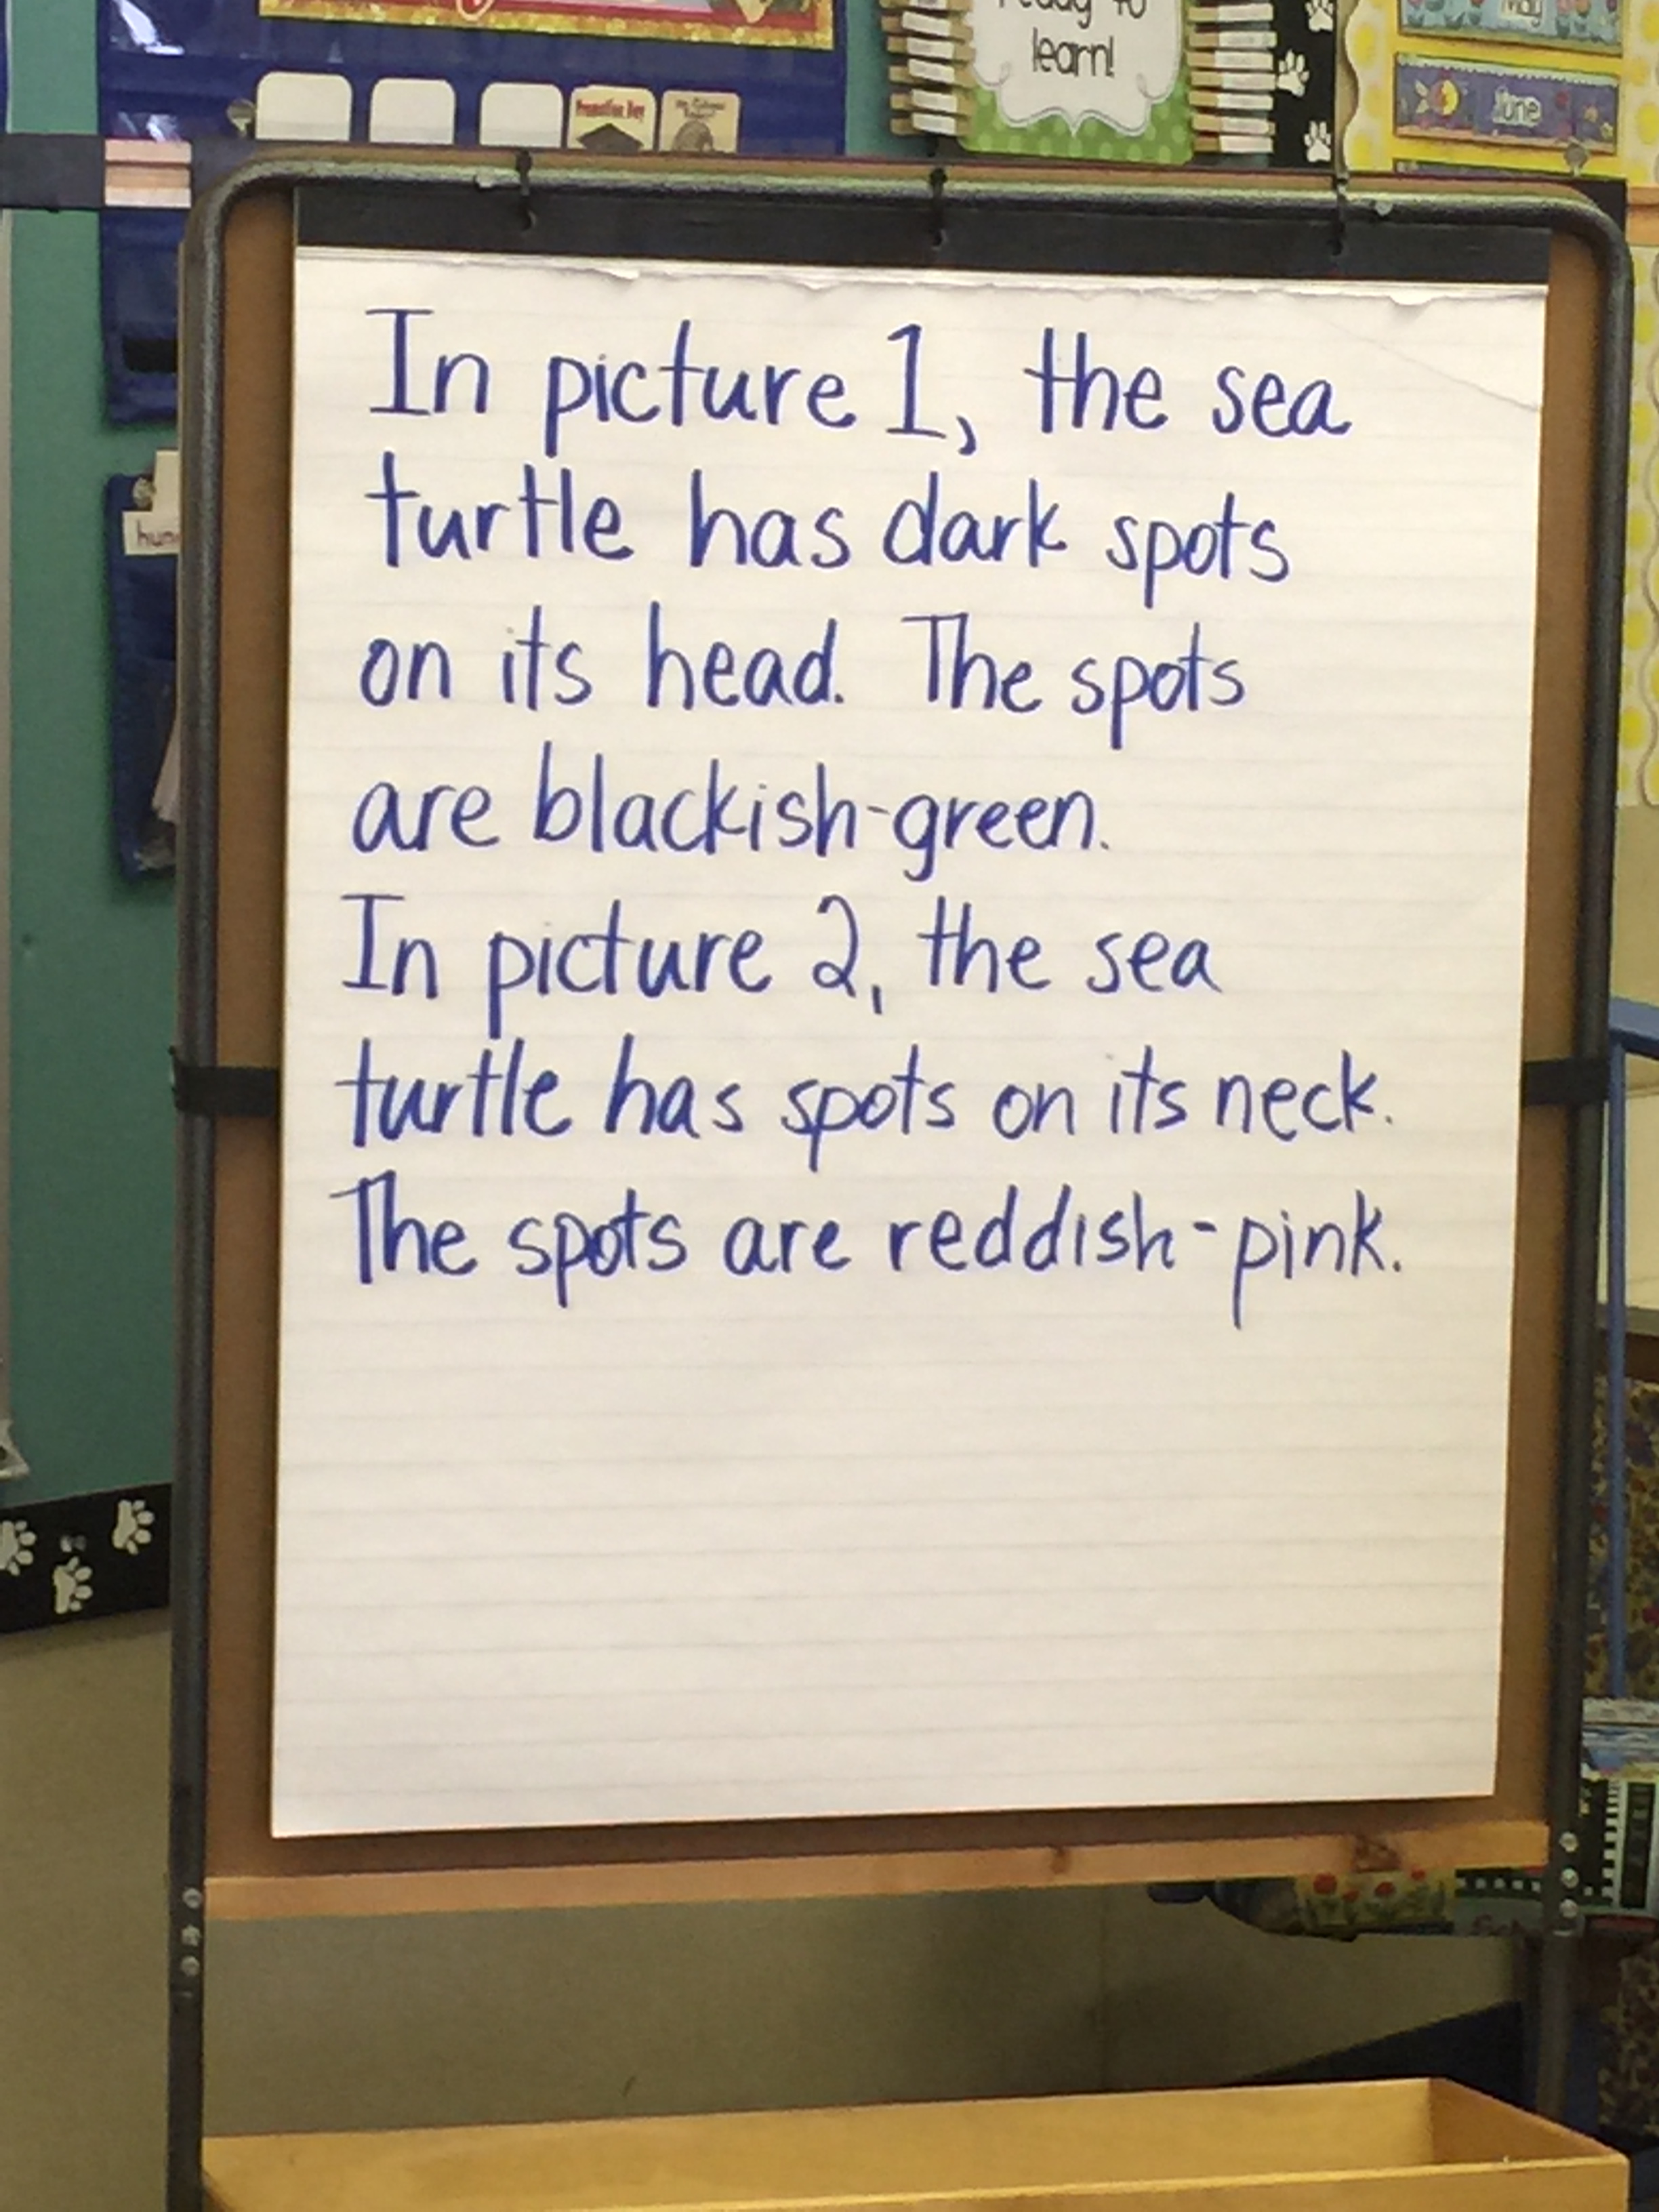 ready to
learn!
May
June
Promotion Day
In picture 1, the sea
turtle has dark spots
on its head. The spots
are blackish-green.
In picture 2, the sea
turtle has spots on its neck.
The spots are reddish-pink.